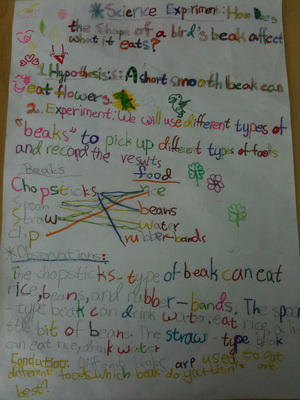 *Science Experiment: How Does
the shape of a bird's beak affect
what it eats?
1. Hypothesis: A short smooth beak can
eat flowers.
2. Experiment: We will use different types of
"beaks" to pick up different types of foods
and record the results
Beaks food
Chopsticks rice
Spoon beans
Straw water
Clip rubber-bands
*Observations:
The chopsticks-type of beak can eat
rice, beans, and rubber-bands. The spoon
type beak can drink water, eat rice, a
bit of beans. The straw-type beak
can eat rice, drink water
different beaks are used to eat
different foods which beak do you think are
best?